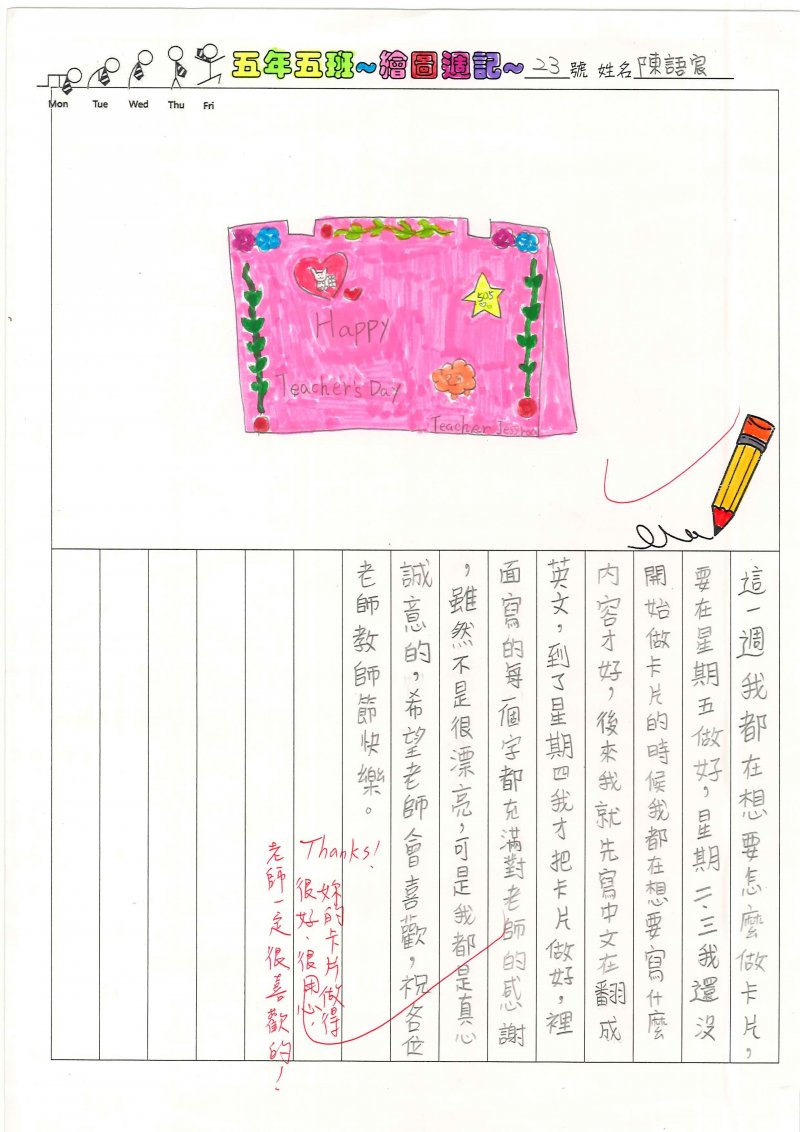 五年五班~繪圖週記~ 23號 姓名陳語宸
Mon Tue Wed Thu Fri
505
Happy
Teacher's Day
Teacher Jess
這一週我都在想要怎麼做卡片,
要在星期五做好,星期二.三我還沒
開始做卡片的時候我都在想要寫什麼
內容才好,後來我就先寫中文在翻成
英文,到了星期四我才把卡片做好,裡
面寫的每一個字都充滿對老師的感謝
,雖然不是很漂亮,可是我都是真心
誠意的,希望老師會喜歡,祝各位
老師教師節快樂。
Thanks!
妳的卡片做得
很好.很用心.
老師一定很喜歡的!